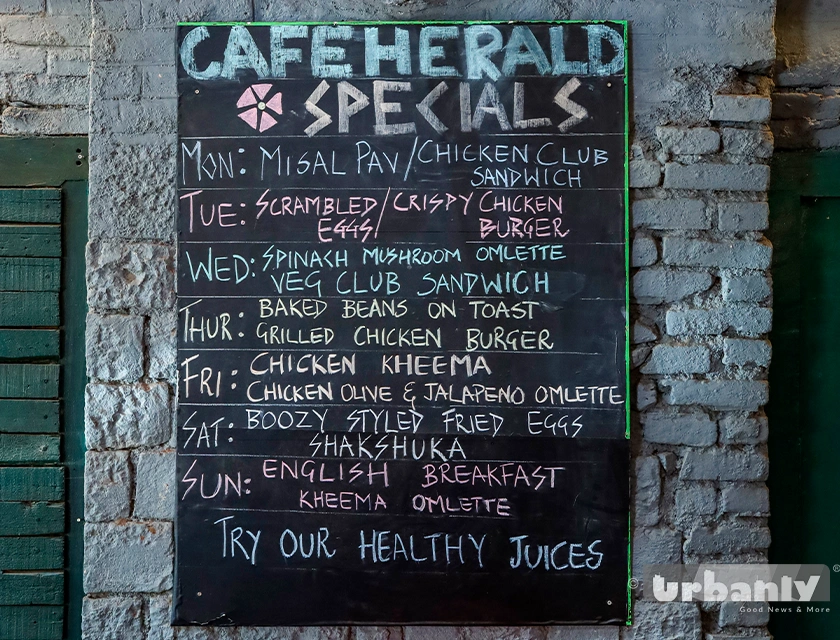 CAFE HERALD
SPECIALS
MON: MISAL PAV/CHICKEN CLUB
SANDWICH
TUE: SCRAMBLED/CRISPY CHICKEN
EGGS/ BURGER
WED: SPINACH MUSHROOM OMLETTE
VEG CLUB SANDWICH
THUR: BAKED BEANS ON TOAST
GRILLED CHICKEN BURGER
FRI: CHICKEN KHEEMA
CHICKEN OLIVE & JALAPENO OMLETTE
SAT: BOOZY STYLED FRIED EGGS
SHAKSHUKA
SUN: ENGLISH BREAKFAST
KHEEMA OMLETTE
TRY OUR HEALTHY JUICES
© urbanly ®
Good News & More